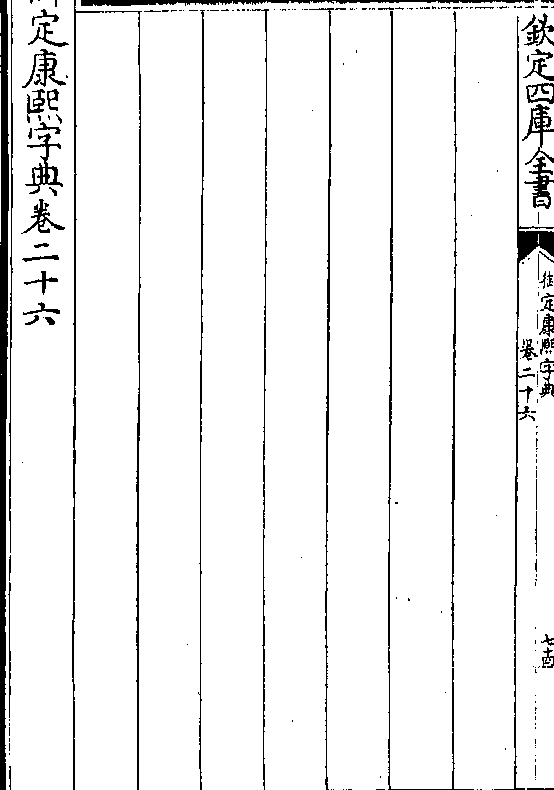 欽定四庫全書
御定康熙字典
卷二十六
七十四
御定康熙字典卷二十六